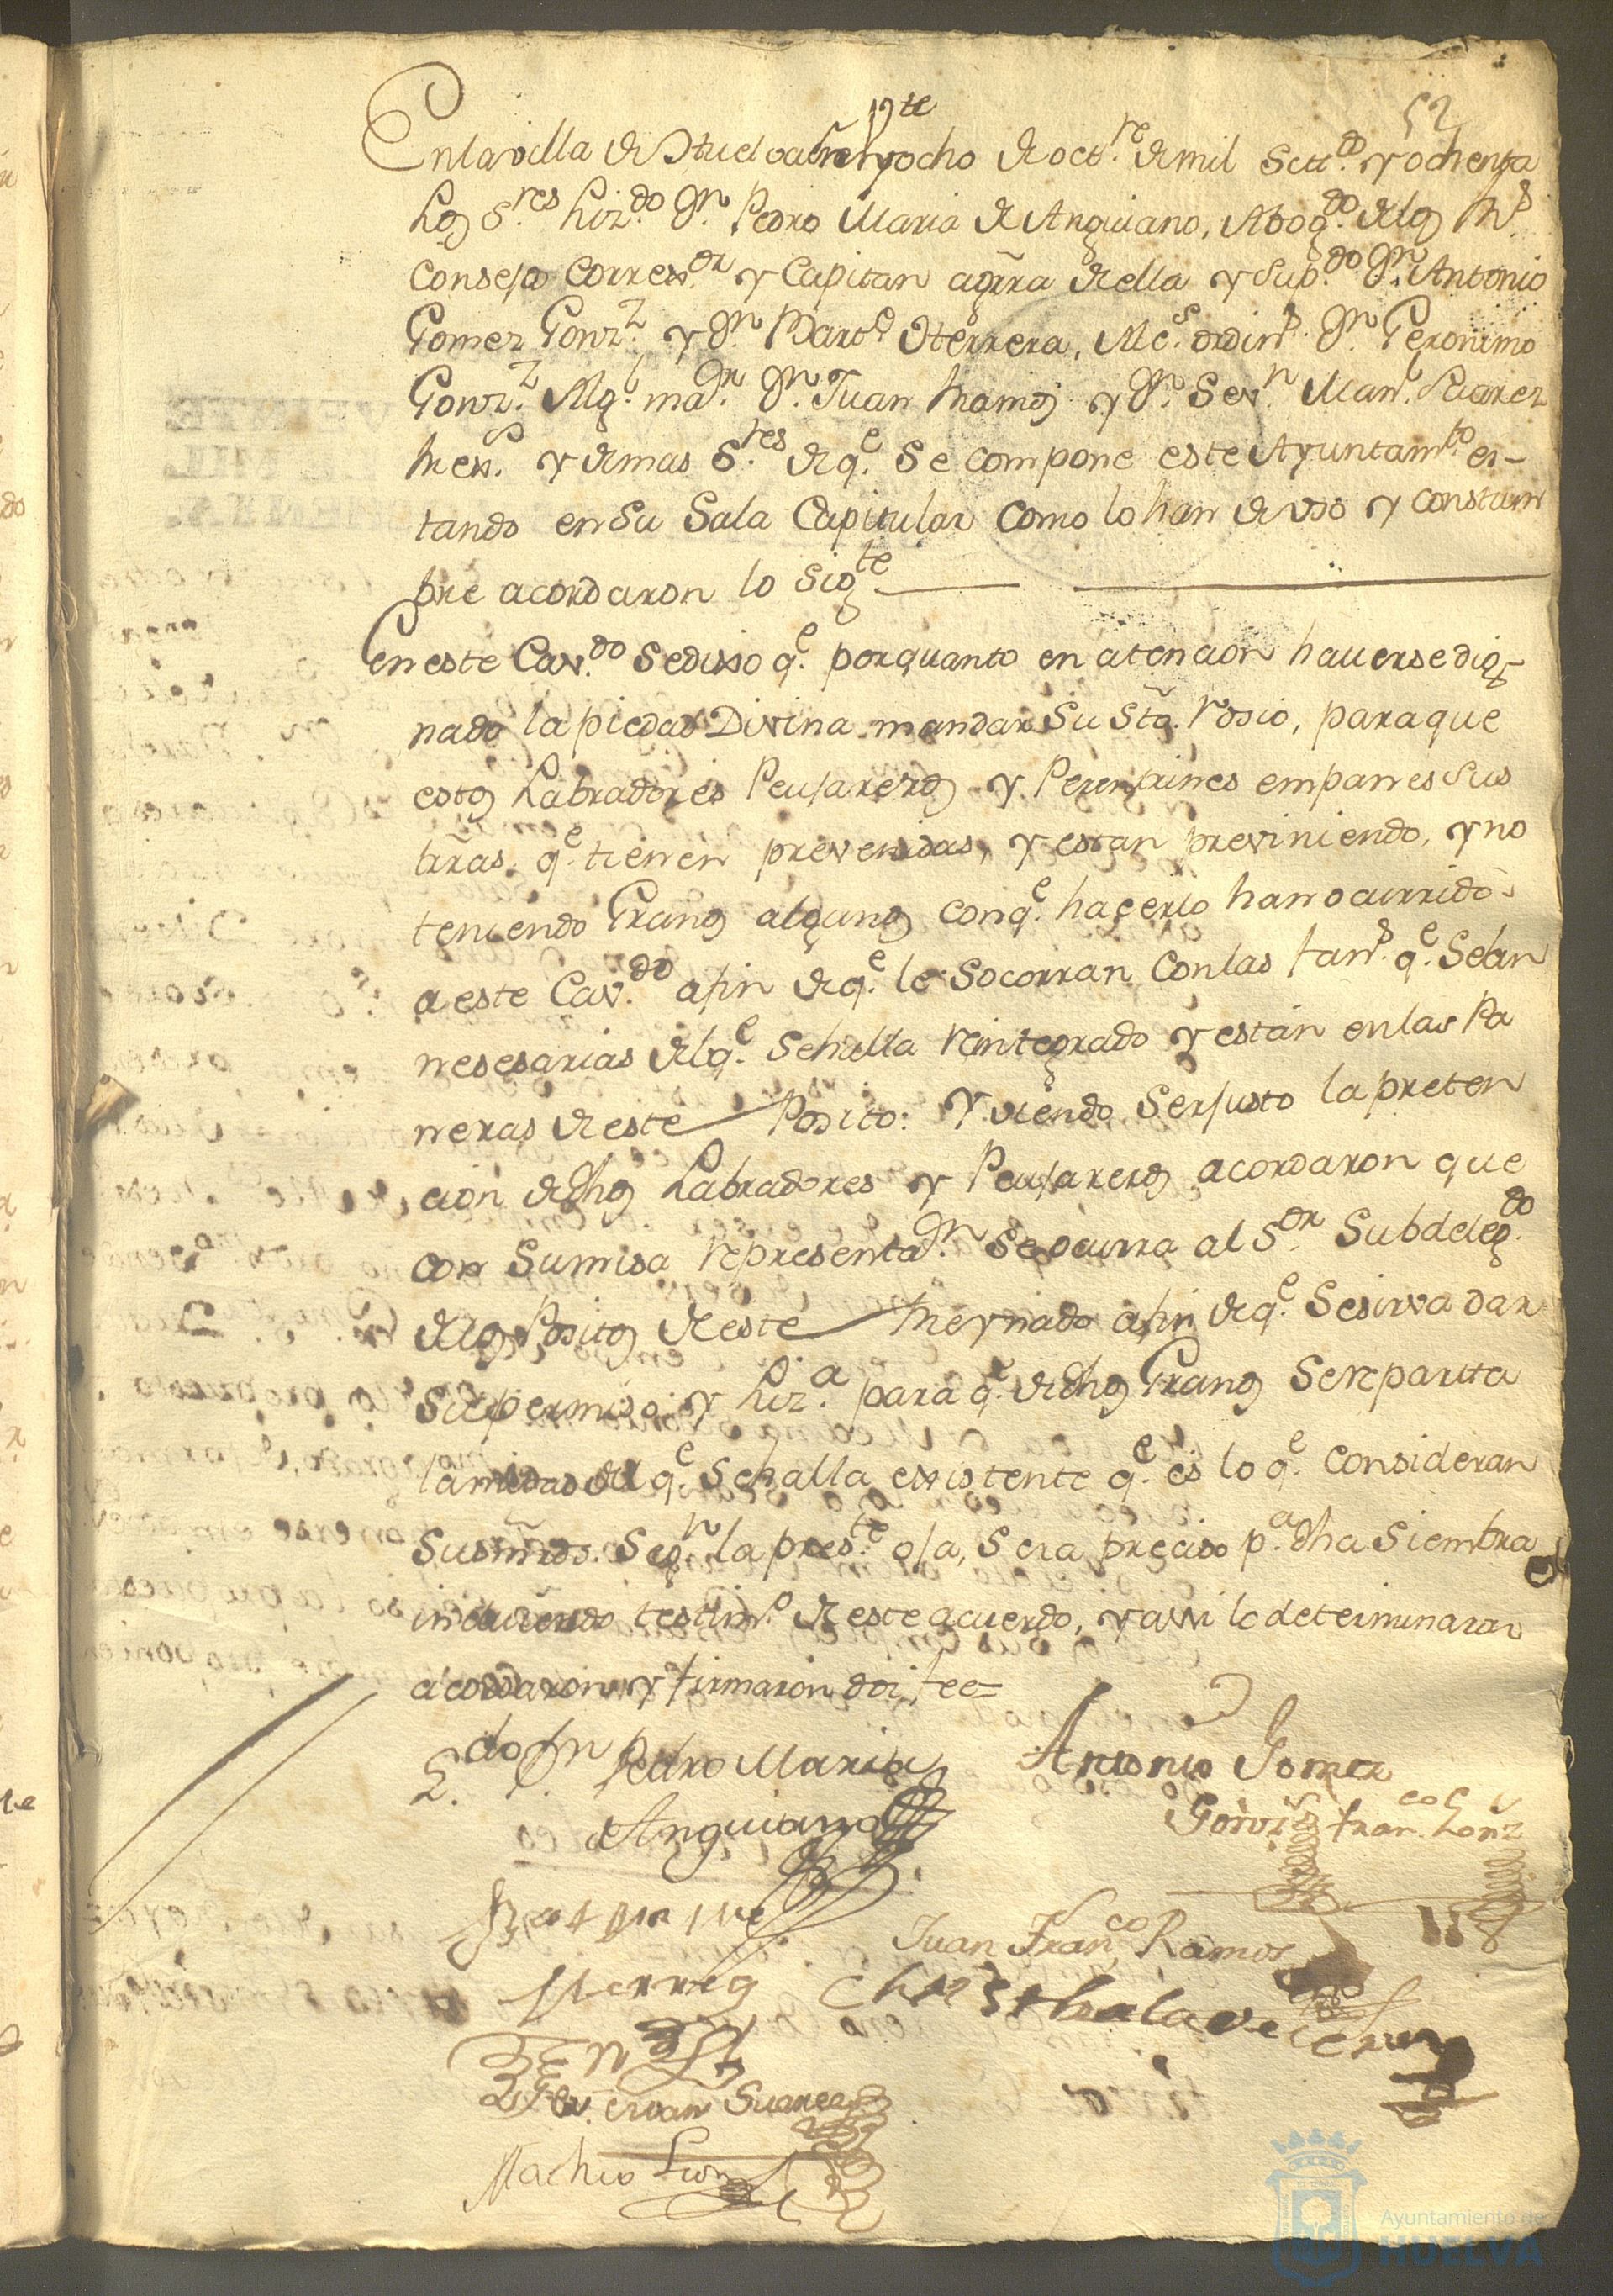 52
En la villa de Huelva en veinte y ocho de oct.re de mil sett.do y ochenta
los S.res Liz.do Dn. Pedro Maria de Anguiano, Abog.do de los R.s
Consejos Correx.or y Capitan aguerra de ella y su p.do Dn. Antonio
Gomez Gonz.z y Dn. Bart.e Herrera, Alc.s ordin.s Dn. Geronimo
Gonz.z Alg.l ma.r Dn. Juan Ramos y Dn. Sev.n Man.l Suarez
Rex.s y demas S.res de q.e se compone este Ayuntam.to es-
tando en su Sala Capitular como lo han de uso y constum
bre acordaron lo sig.te
En este Cav.do se dixo q.e por quanto en atencion haverse dig-
nado la piedad Divina mandar su Sta. rosio, para que
estos Labradores Peujareros y Perentrines empanes sus
trras. q.e tienen prevenidas, y estan previniendo, y no
teniendo Granos algunos con q.e hacerlo han ocurrido
a este Cav.do afin de q.e le socorran con las fan.s q.e sean
nesesarias del q.e se halla reintegrado y estan en las Pa
neras de este Posito: Y viendo ser justo la preten
cion de dhos Labradores y Peujareros acordaron que
con sumisa representa.on se ocurra al S.or Subdeleg.do
de los Positos de este Reynado afin de q.e se sirva dar
su permiso y Liz.a para q.e de dhos Granos se reparta
la mitad del q.e se halla existente q.e es lo q.e consideran
sus mrds. seg.n la pres.te oja, sera preciso p.a dha siembra
incluiendo testim.o de este acuerdo, y assi lo determinaron
acordaron y firmaron doi fee=
L.do Dn Pedro Maria
de Anguiano
Antonio Gomez
Gonz. Fran.co Gonz
Bartolome
Herrera
Juan Fran.co Ramos
Suarez
Ayuntamiento de
HUELVA